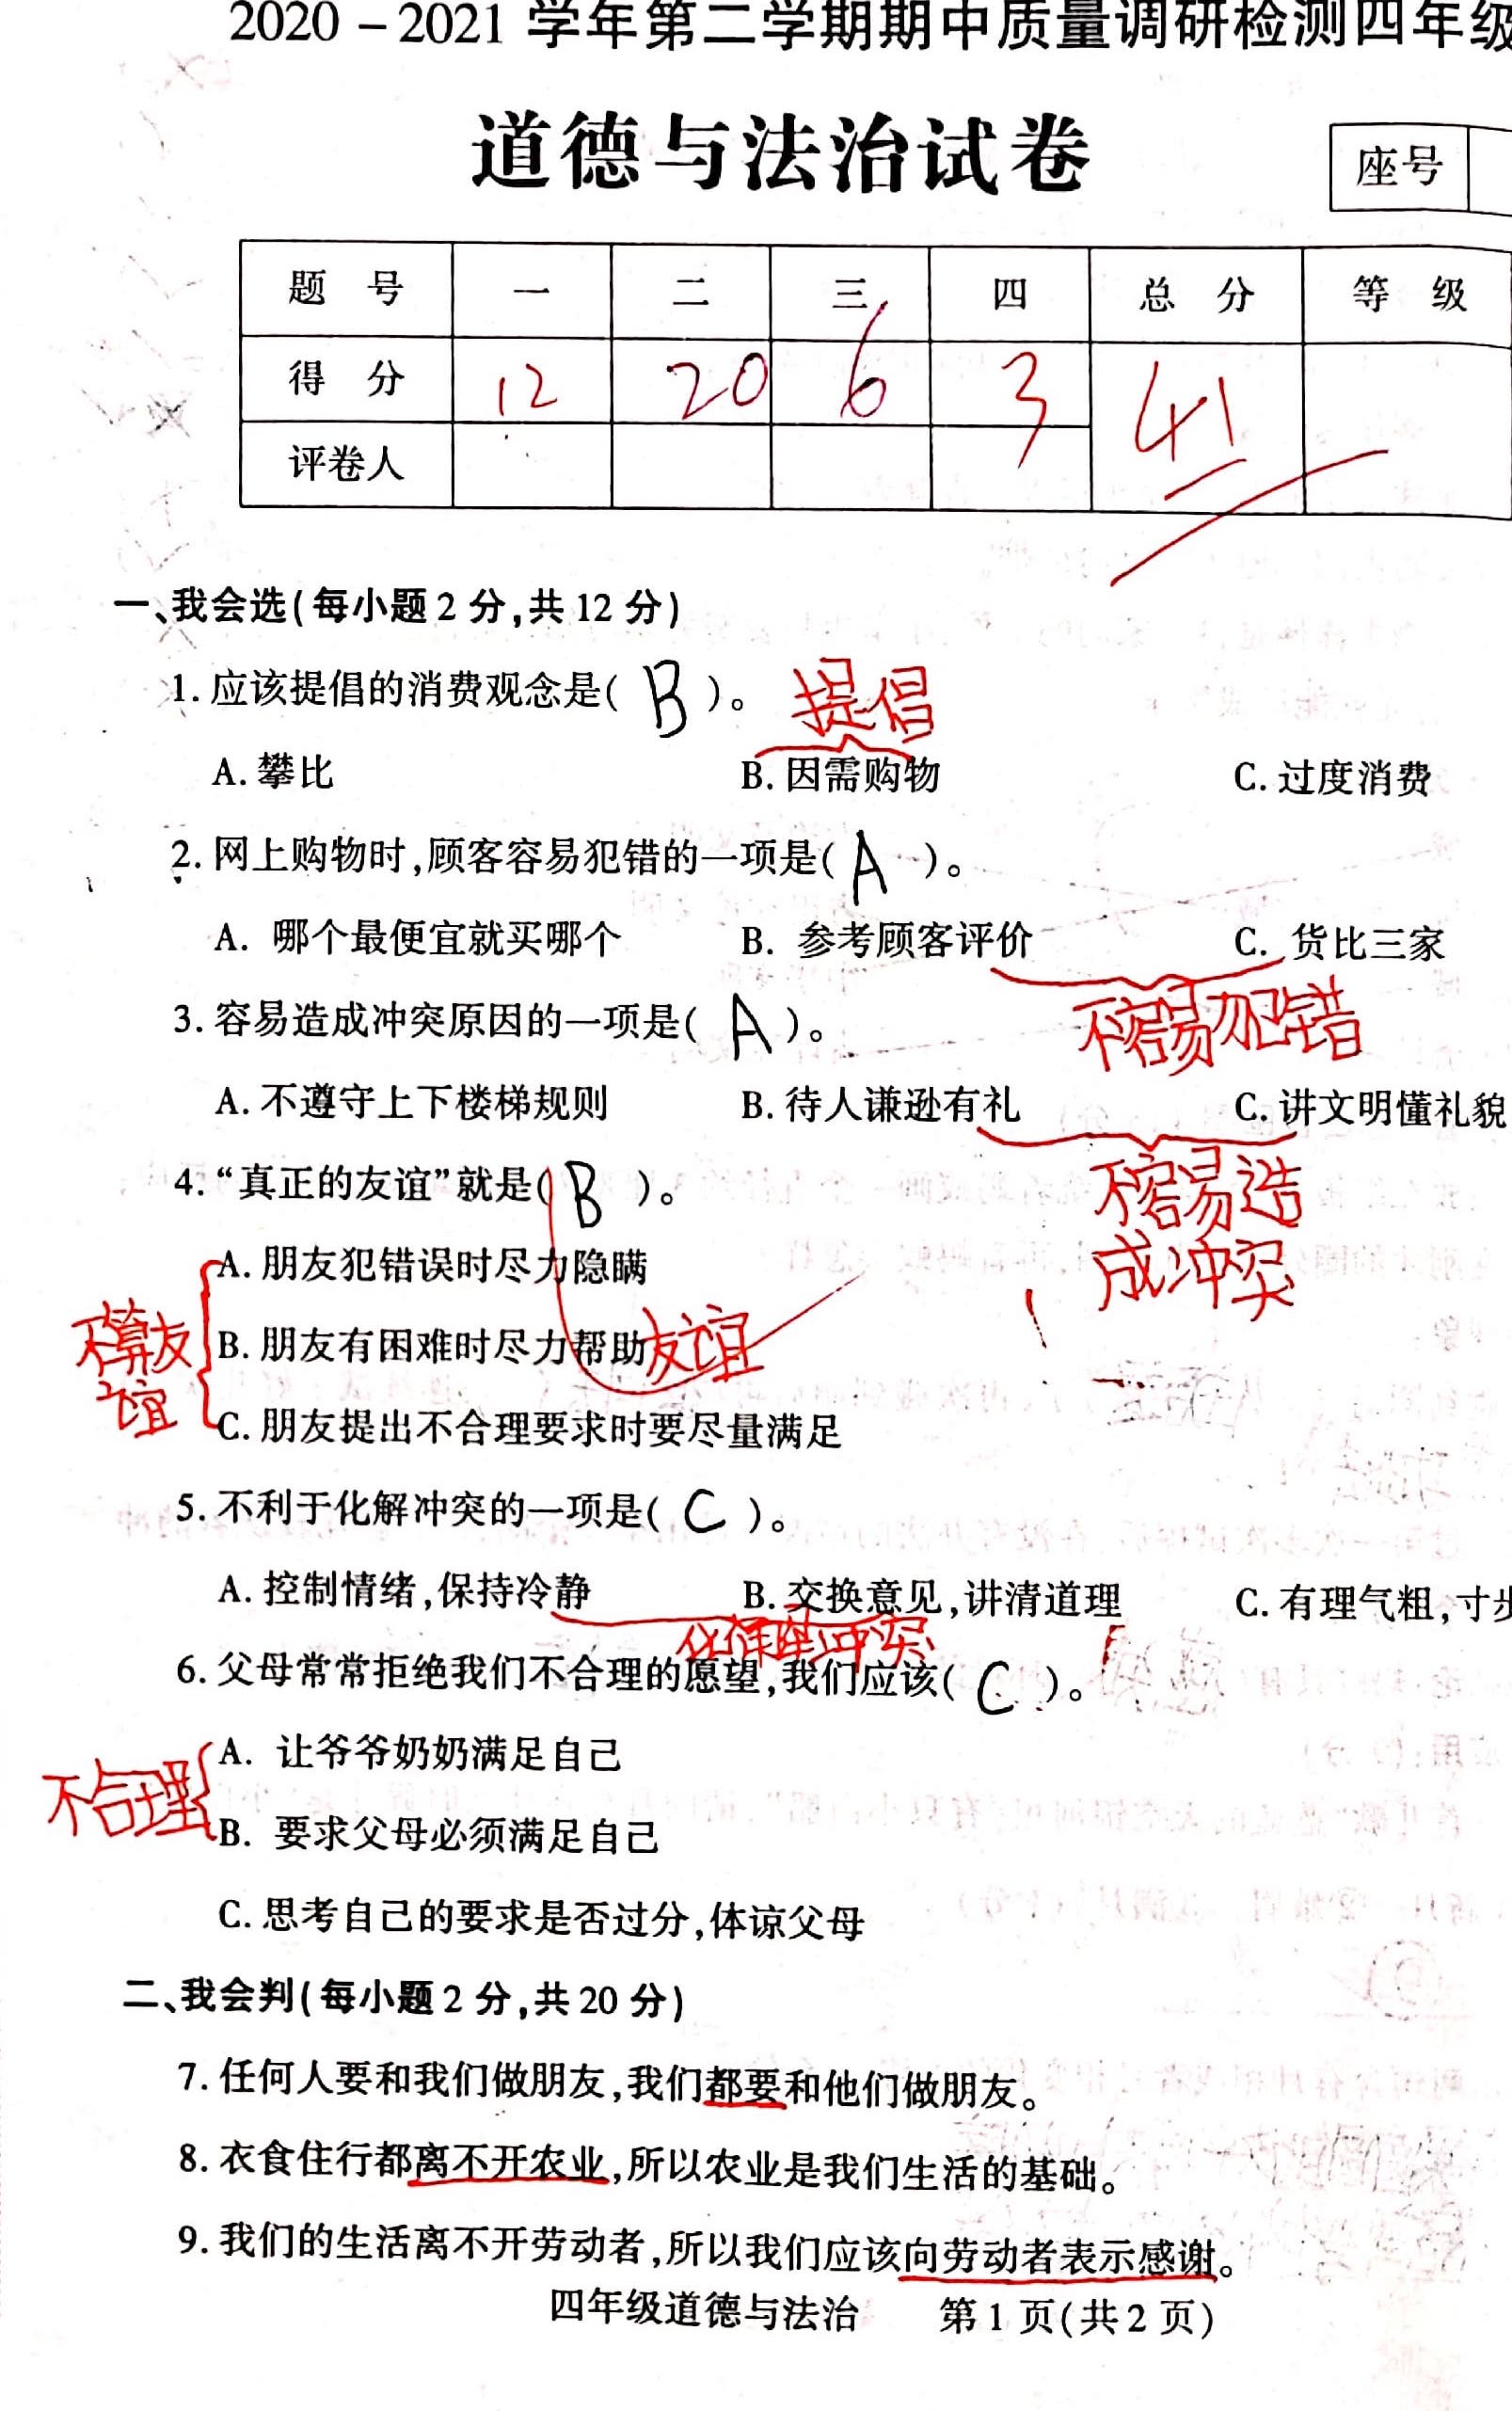 2020－2021 学年第二学期期中质量调研检测四年级
道德与法治试卷
座号
题 号 一 二 三 四 总 分 等 级
得 分 12 20 6 3 41
评卷人
一、我会选(每小题2分,共12分)
1. 应该提倡的消费观念是( B )。 提倡
A. 攀比 B. 因需购物 C. 过度消费
2. 网上购物时,顾客容易犯错的一项是( A )。
A. 哪个最便宜就买哪个 B. 参考顾客评价 C. 货比三家
不容易犯错
3. 容易造成冲突原因的一项是( A )。
A. 不遵守上下楼梯规则 B. 待人谦逊有礼 C. 讲文明懂礼貌
不容易造
成冲突
4. “真正的友谊”就是( B )。
A. 朋友犯错误时尽力隐瞒
不算友
谊
B. 朋友有困难时尽力帮助 友谊
C. 朋友提出不合理要求时要尽量满足
5. 不利于化解冲突的一项是( C )。
A. 控制情绪,保持冷静 B. 交换意见,讲清道理 C. 有理气粗,寸步
化解冲突
6. 父母常常拒绝我们不合理的愿望,我们应该( C )。
不合理
A. 让爷爷奶奶满足自己
B. 要求父母必须满足自己
C. 思考自己的要求是否过分,体谅父母
二、我会判(每小题2分,共20分)
7. 任何人要和我们做朋友,我们都要和他们做朋友。
8. 衣食住行都离不开农业,所以农业是我们生活的基础。
9. 我们的生活离不开劳动者,所以我们应该向劳动者表示感谢。
四年级道德与法治 第1页(共2页)